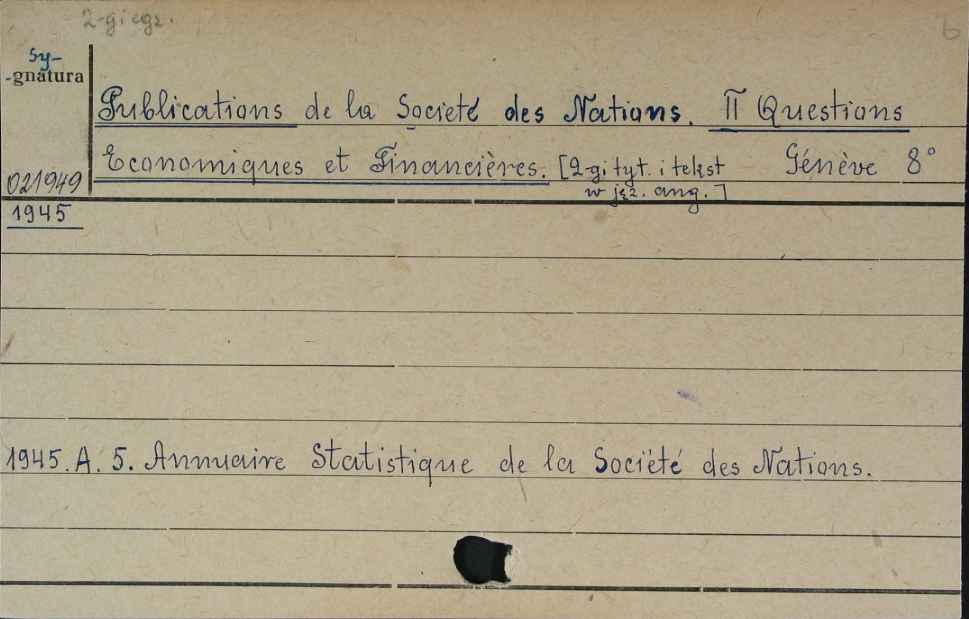 2-gi egz.
6
Sy-
-gnatura
Publications de la Societé des Nations. II Questions
Economiques et Financières. [2-gi tyt. i tekst Génève 8°
w jęz. ang.]
021949
1945
1945. A. 5. Annuaire Statistique de la Société des Nations.